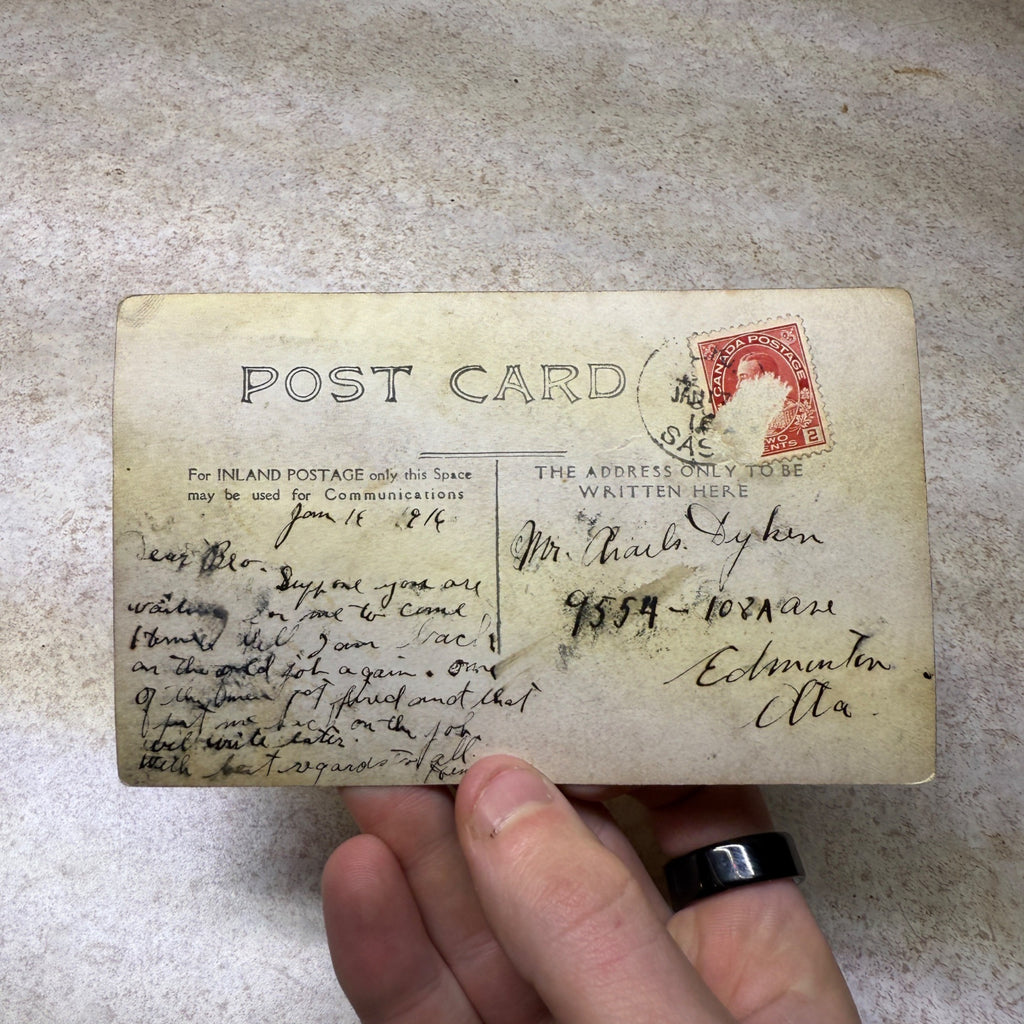 POST CARD
CANADA POSTAGE
2
CENTS
JAN
SAS
For INLAND POSTAGE only this Space
may be used for Communications
THE ADDRESS ONLY TO BE
WRITTEN HERE
Jan 16 1916
Dear Bro.
Suppose you are
waiting for me to come
Home Well I am back
on the old job again. One
of the men got fired and that
put me back on the job
will write later.
With best regards to all.
Mr. Charls. Dyken
9554 - 102A ave
Edmonton
Alta.